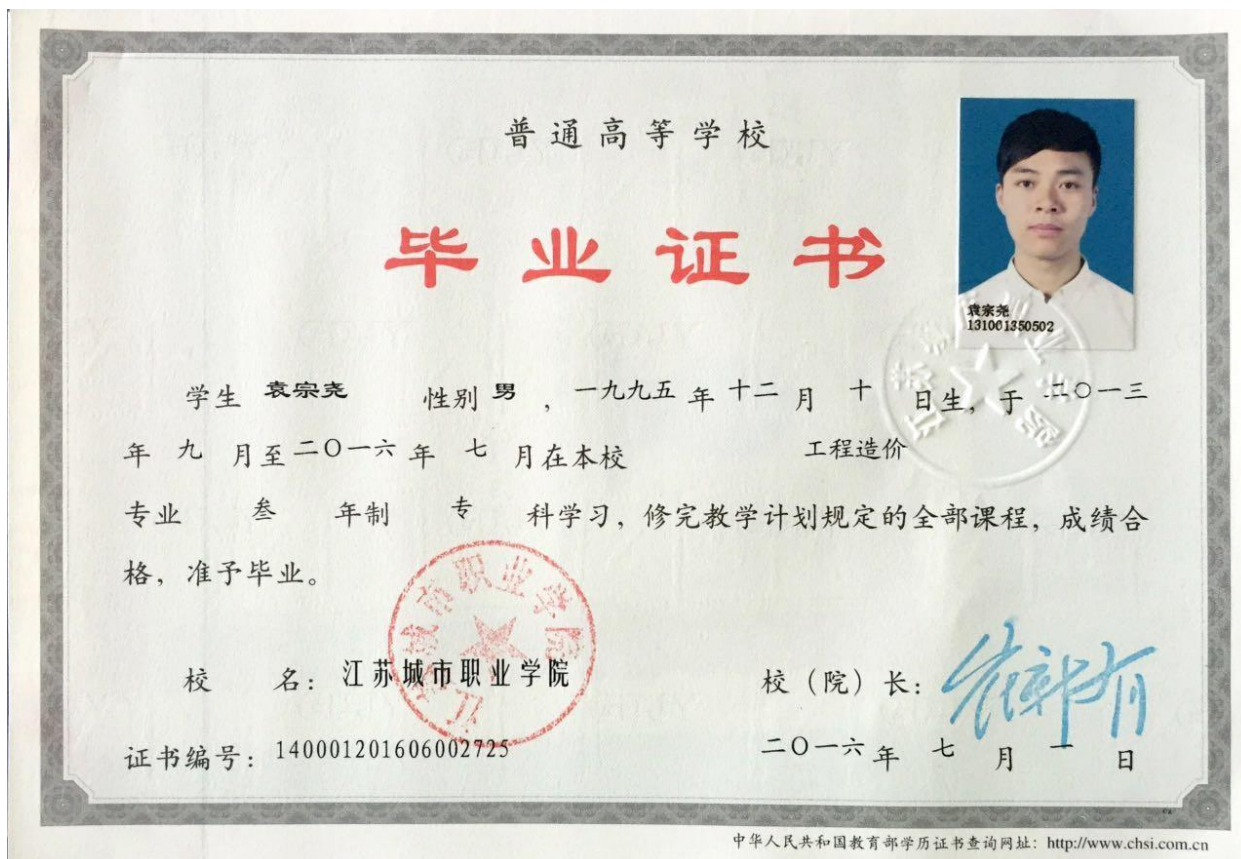 普通高等学校
毕业证书
袁宗尧
131001350502
学生 袁宗尧 性别 男 , 一九九五 年 十二 月 十 日生, 于 二〇一三
年 九 月至 二〇一六 年 七 月在本校 工程造价
专业 叁 年制 专 科学习, 修完教学计划规定的全部课程, 成绩合
格, 准予毕业。
江苏城市职业学院
校 名: 江苏城市职业学院
校 (院) 长:
证书编号: 140001201606002725
二〇一六 年 七 月 一 日
中华人民共和国教育部学历证书查询网址: http://www.chsi.com.cn